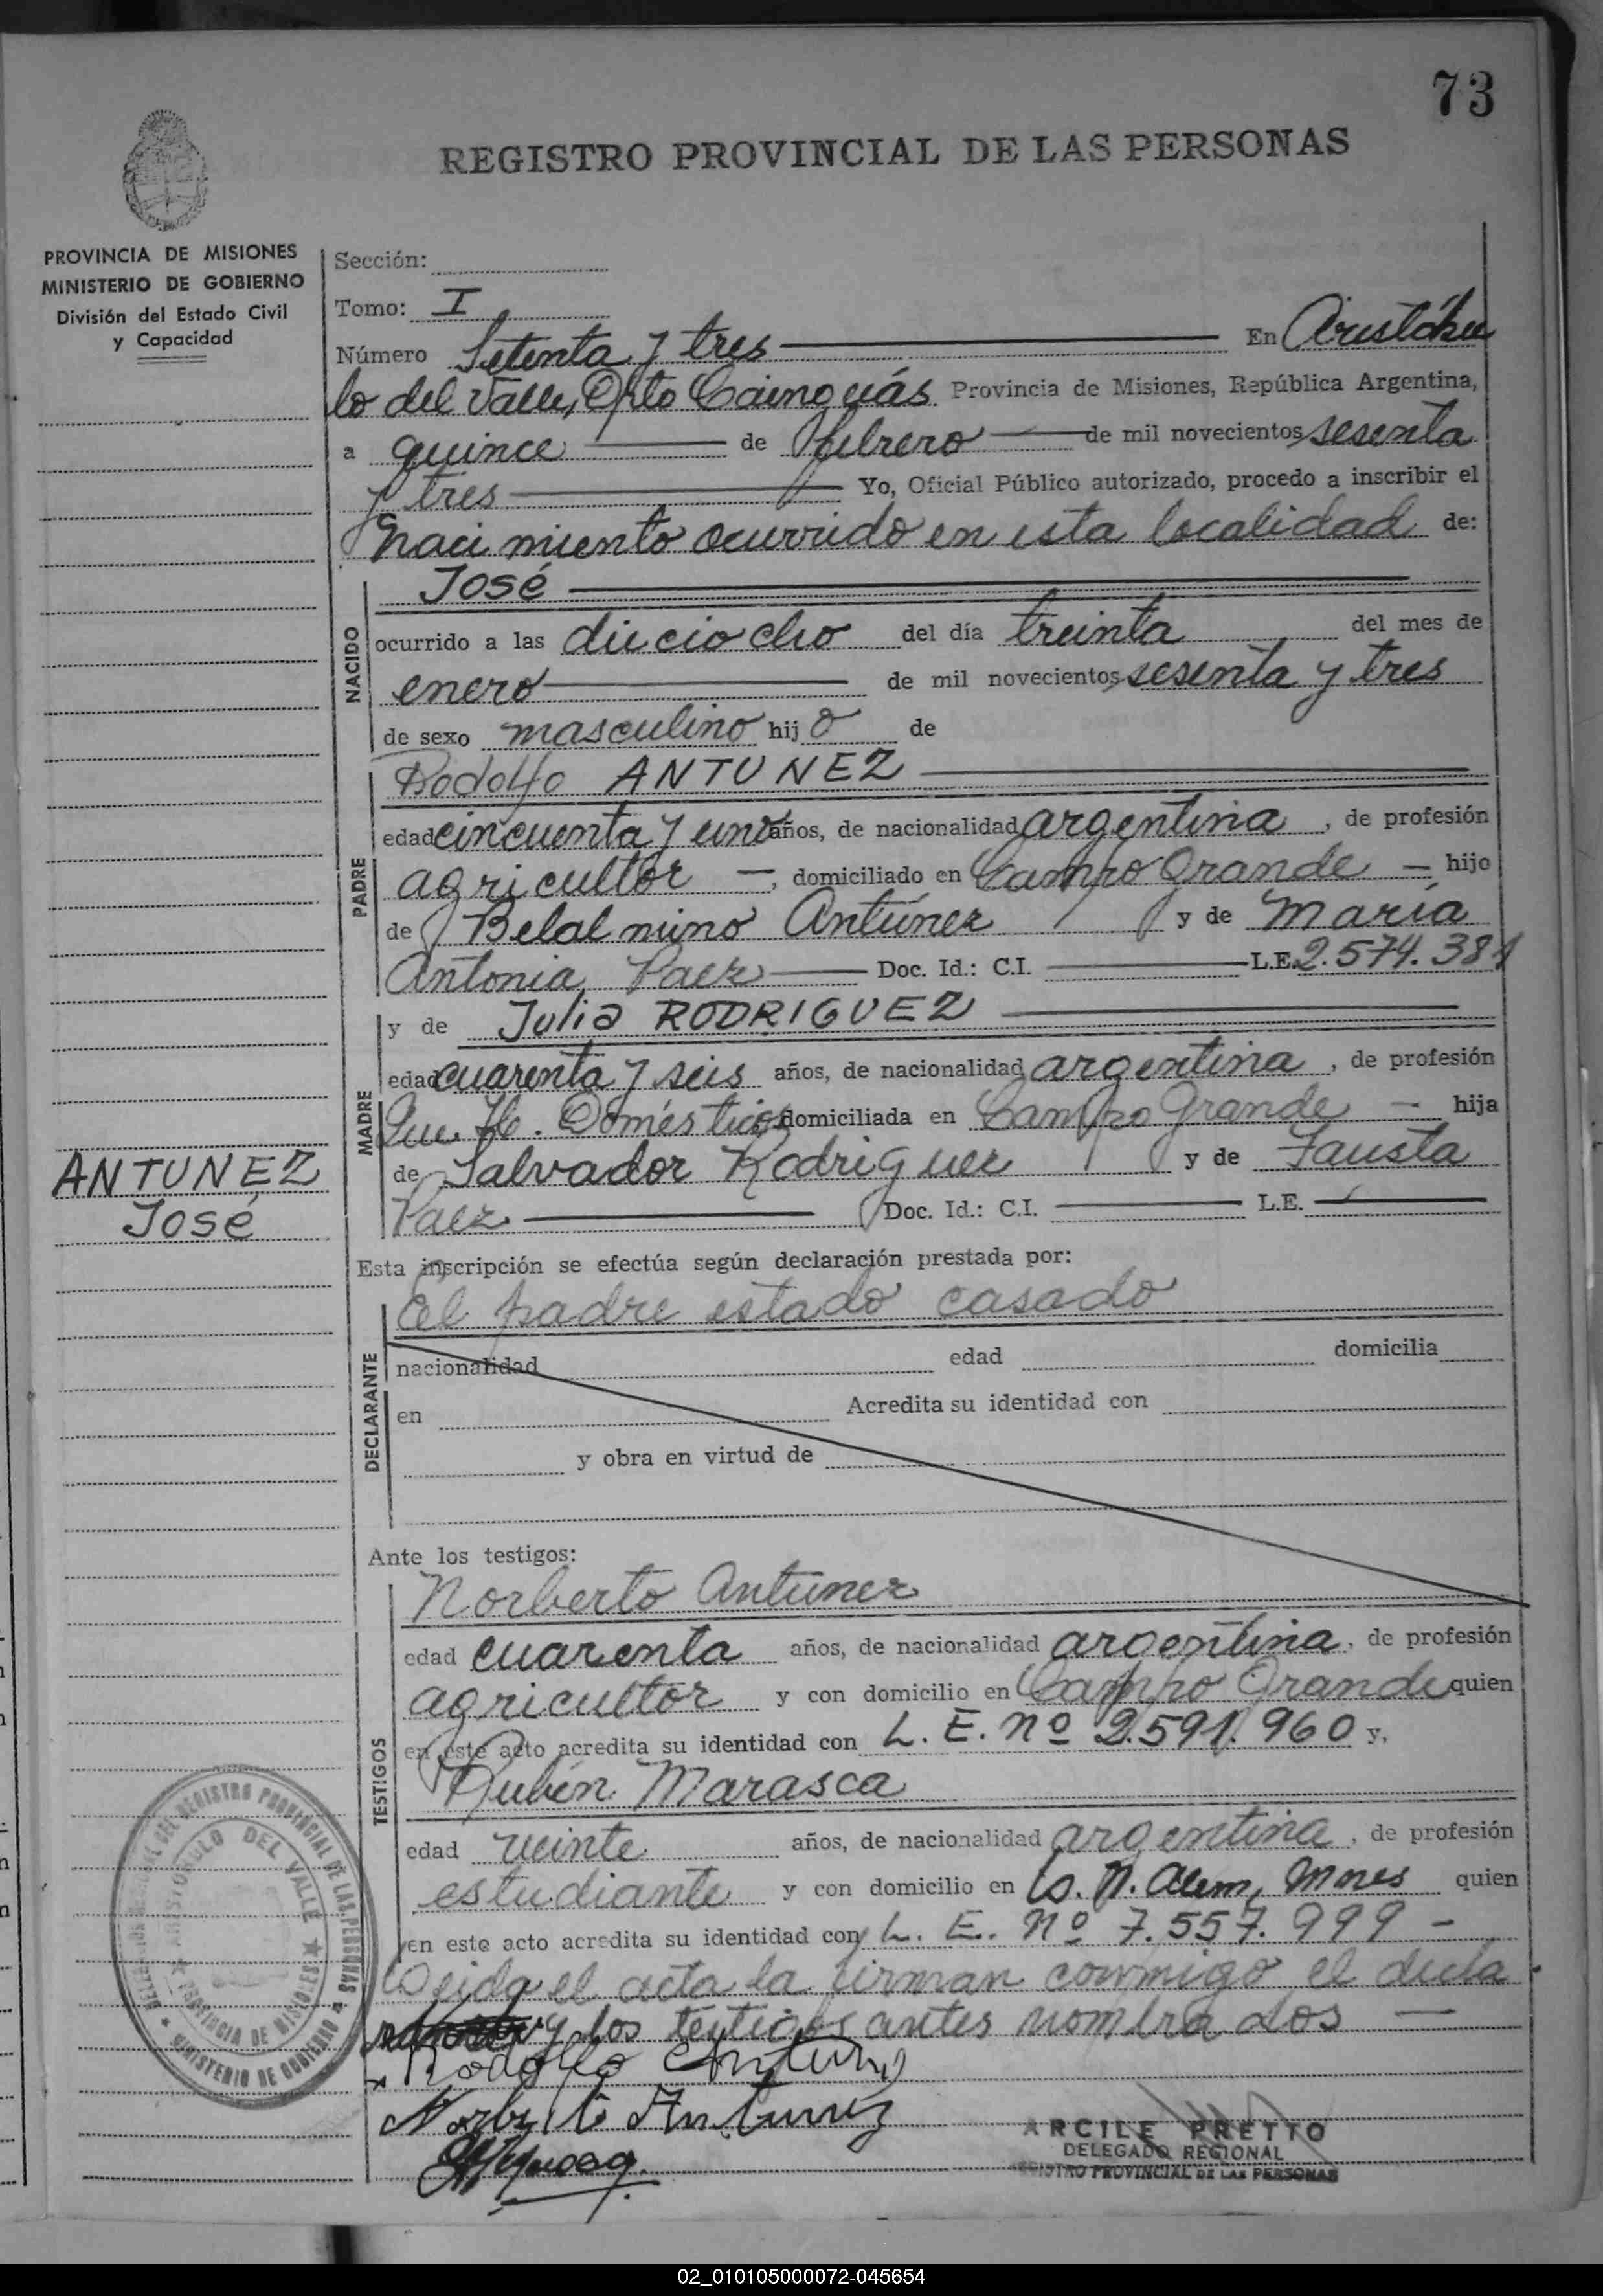 73
REGISTRO PROVINCIAL DE LAS PERSONAS
PROVINCIA DE MISIONES
MINISTERIO DE GOBIERNO
División del Estado Civil
y Capacidad
Sección:
Tomo: I
Número Setenta y tres En Aristóbu
lo del Valle, Dpto Cainguás Provincia de Misiones, República Argentina,
a quince de febrero de mil novecientos sesenta
y tres Yo, Oficial Público autorizado, procedo a inscribir el
nacimiento ocurrido en esta localidad de:
NACIDO
José
ocurrido a las dieciocho del día treinta del mes de
enero de mil novecientos sesenta y tres
de sexo masculino hijo de
PADRE
Rodolfo ANTUNEZ
edad cincuenta y uno años, de nacionalidad argentina, de profesión
agricultor —, domiciliado en Campo Grande — hijo
de Belalmino Antúnez y de María
Antonia Paez Doc. Id.: C.I. L.E. 2.574.381
MADRE
y de Julia RODRIGUEZ
edad cuarenta y seis años, de nacionalidad argentina, de profesión
Que. H. Domésticos domiciliada en Campo Grande — hija
de Salvador Rodriguez y de Fausta
Paez Doc. Id.: C.I. L.E.
ANTUNEZ
José
Esta inscripción se efectúa según declaración prestada por:
DECLARANTE
El padre estado casado
nacionalidad edad domicilia
en Acredita su identidad con
y obra en virtud de
Ante los testigos:
TESTIGOS
Norberto Antunez
edad cuarenta años, de nacionalidad argentina, de profesión
agricultor y con domicilio en Campo Grande quien
en este acto acredita su identidad con L. E. nº 2.591.960 y,
Rubén Marasca
edad veinte años, de nacionalidad argentina, de profesión
estudiante y con domicilio en L. N. Alem, Mnes quien
en este acto acredita su identidad con L. E. Nº 7.557.999 —
Leida el acta la firman conmigo el decla
y los testigos antes nombrados —
Rodolfo Antunez
Norberto Antunez
ARCILE PRETTO
DELEGADO REGIONAL
REGISTRO PROVINCIAL DE LAS PERSONAS
DEL REGISTRO PROVINCIAL DE LAS PERSONAS
MINISTERIO DE GOBIERNO
ARISTOBULO DEL VALLE
PROVINCIA DE MISIONES
02_010105000072-045654